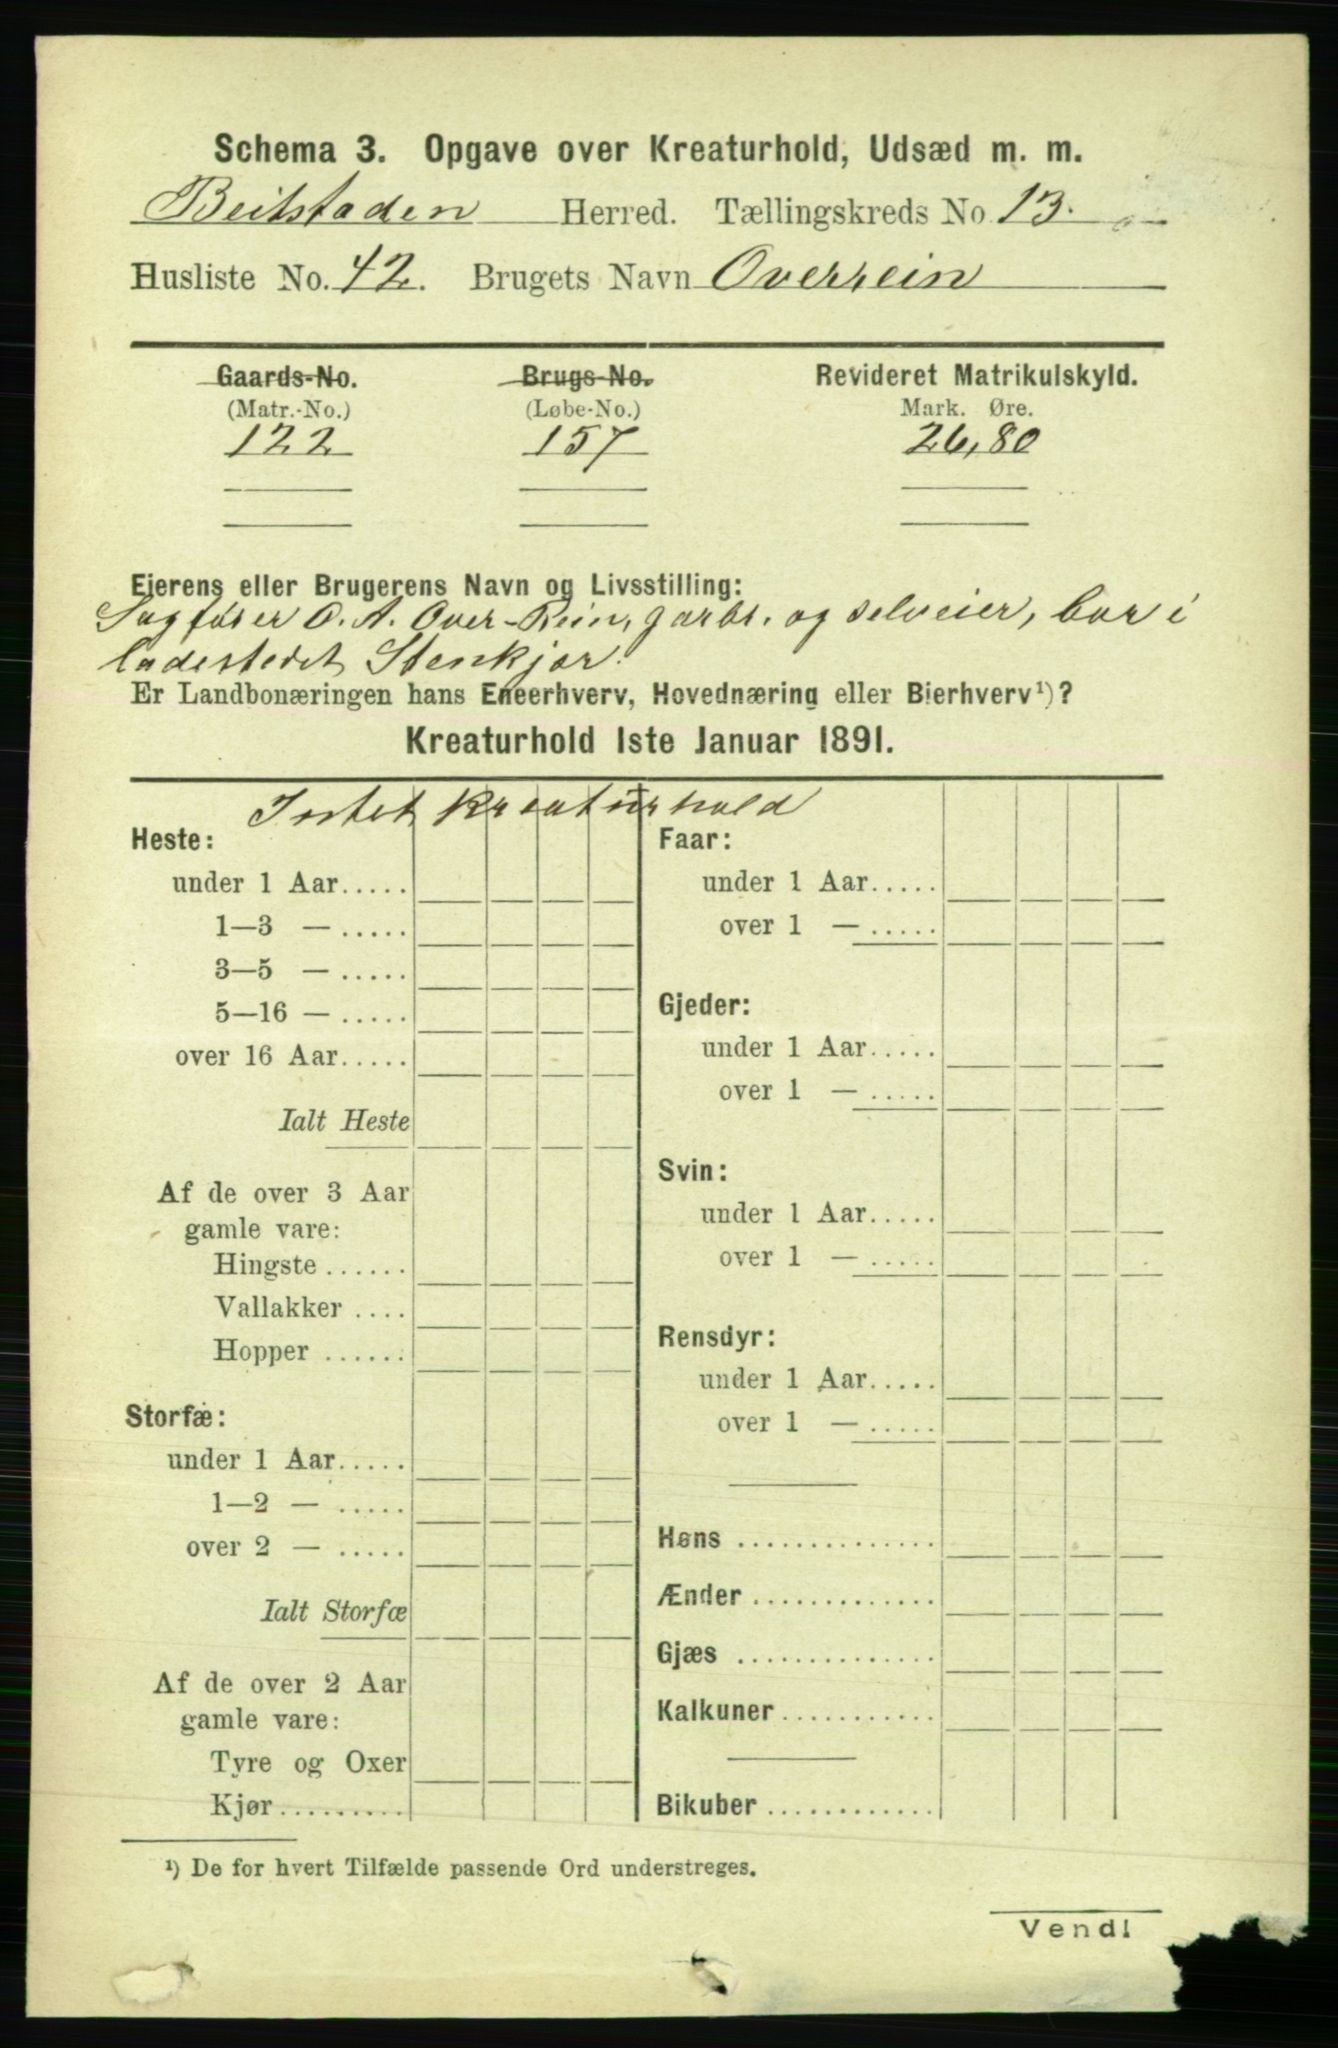 Schema 3. Opgave over Kreaturhold, Udsæd m. m.
Beitstaden Herred. Tællingskreds No 13.
Husliste No. 42. Brugets Navn Overrein
Gaards-No. Brugs-No. Revideret Matrikulskyld.
(Matr.-No.) (Løbe-No.) Mark. Øre.
122 157 26,80
Eierens eller Brugerens Navn og Livsstilling:
Sagfører O. A. Over-Rein, garbr. og selveier, bor i
ladestedet Stenkjær.
Er Landbonæringen hans Eneerhverv, Hovednæring eller Bierhverv¹)?
Kreaturhold 1ste Januar 1891.
Intet kreaturhold
Heste:
under 1 Aar.....
1—3 — .....
3—5 — .....
5—16 — .....
over 16 Aar.....
Ialt Heste
Af de over 3 Aar
gamle vare:
Hingste ......
Vallakker ....
Hopper ......
Storfæ:
under 1 Aar.....
1—2 — .....
over 2 — .....
Ialt Storfæ
Af de over 2 Aar
gamle vare:
Tyre og Oxer
Kjør..........
Faar:
under 1 Aar.....
over 1 — .....
Gjeder:
under 1 Aar.....
over 1 — .....
Svin:
under 1 Aar.....
over 1 — .....
Rensdyr:
under 1 Aar.....
over 1 — .....
Høns ..............
Ænder .............
Gjæs ..............
Kalkuner...........
Bikuber ............
¹) De for hvert Tilfælde passende Ord understreges.
Vend!